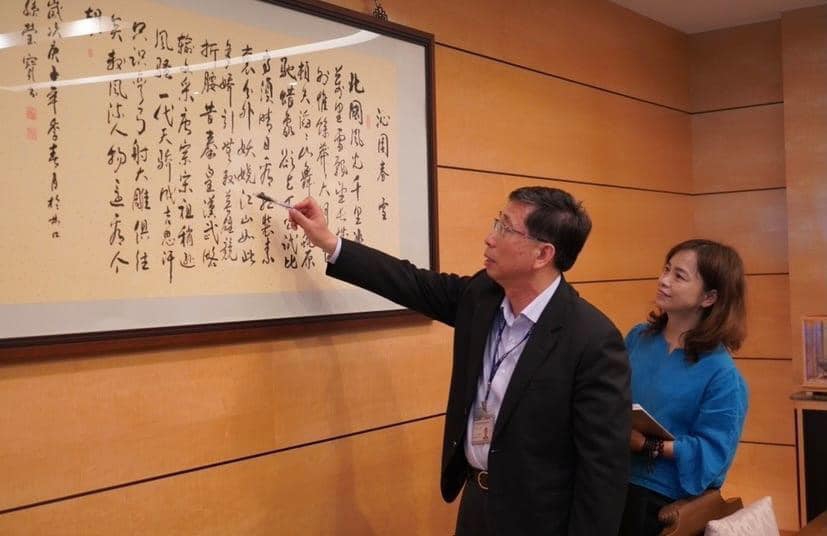 沁園春 雪
北國風光千里冰
萬里雪飄望長城
外惟餘莽莽大河
頓失滔滔山舞銀蛇原
馳蠟象欲與天公試比
高須晴日看紅裝素
裹分外妖嬈江山如此
多嬌引無數英雄競
折腰昔秦皇漢武略
輸文采唐宗宋祖稍遜
風騷一代天驕成吉思汗
只識彎弓射大雕俱往
矣數風流人物還看今
朝
歲次庚午年季春月於
孫瑩寶